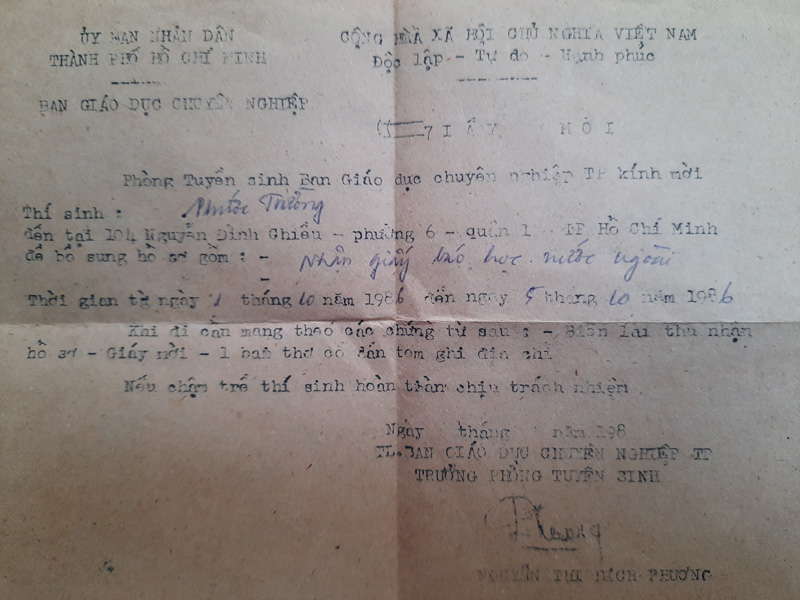 ỦY BAN NHÂN DÂN
THÀNH PHỐ HỒ CHÍ MINH
CỘNG HÒA XÃ HỘI CHỦ NGHĨA VIỆT NAM
Độc lập - Tự do - Hạnh phúc
BAN GIÁO DỤC CHUYÊN NGHIỆP
GIẤY MỜI
Phòng Tuyển sinh Ban Giáo dục chuyên nghiệp TP kính mời
Thí sinh : Phước Trường
đến tại 104 Nguyễn Đình Chiểu - phường 6 - quận 1 - TP Hồ Chí Minh
để bổ sung hồ sơ gồm : - Nhận giấy báo học nước ngoài
-
Thời gian từ ngày 1 tháng 10 năm 1986 đến ngày 5 tháng 10 năm 1986
Khi đi cần mang theo các chứng từ sau : - Biên lai thu nhận
hồ sơ - Giấy mời - 1 bao thơ có dán tem ghi địa chỉ
Nếu chậm trể thí sinh hoàn toàn chịu trách nhiệm
Ngày tháng năm 198
TL.BAN GIÁO DỤC CHUYÊN NGHIỆP TP
TRƯỞNG PHÒNG TUYỂN SINH
NGUYỄN THỊ BÍCH PHƯỢNG